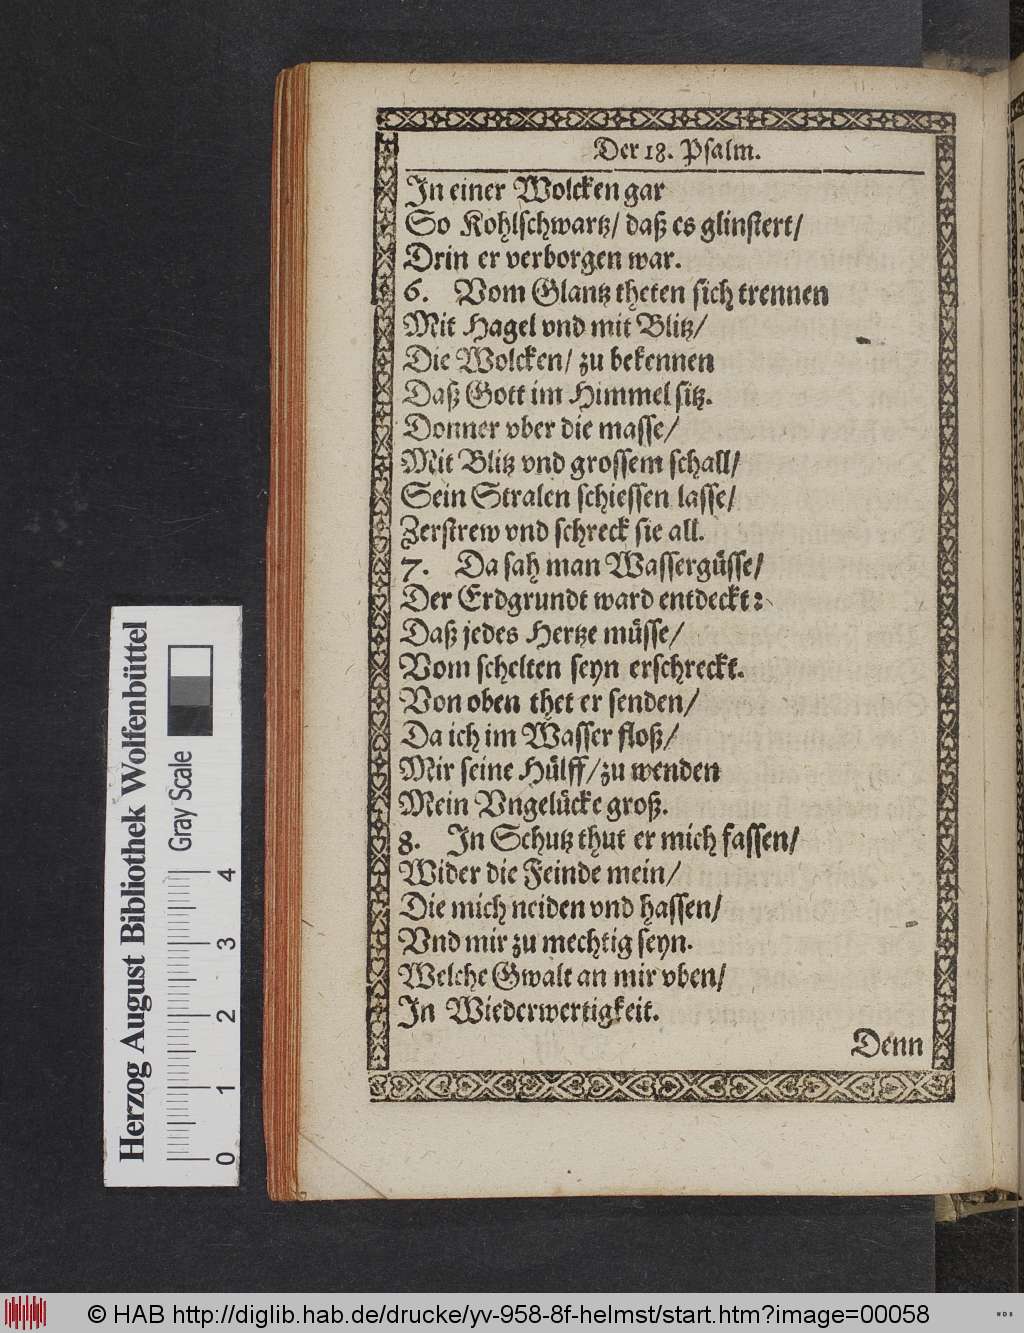 Der 18. Psalm.
In einer Wolcken gar
So Kohlschwartz/ daß es glinstert/
Drin er verborgen war.
6. Vom Glantz theten sich trennen
Mit Hagel vnd mit Blitz/
Die Wolcken/ zu bekennen
Daß Gott im Himmel sitz.
Donner vber die masse/
Mit Blitz vnd grossem schall/
Sein Stralen schiessen lasse/
Zerstrew vnd schreck sie all.
7. Da sah man Wassergüsse/
Der Erdgrundt ward entdeckt:
Daß jedes Hertze müsse/
Vom schelten seyn erschreckt.
Von oben thet er senden/
Da ich im Wasser floß/
Mir seine Hülff/ zu wenden
Mein Vngelücke groß.
8. In Schutz thut er mich fassen/
Wider die Feinde mein/
Die mich neiden vnd hassen/
Vnd mir zu mechtig seyn.
Welche Gwalt an mir vben/
In Wiederwertigkeit.
Denn
Herzog August Bibliothek Wolfenbüttel
Gray Scale
0 1 2 3 4
© HAB http://diglib.hab.de/drucke/yv-958-8f-helmst/start.htm?image=00058